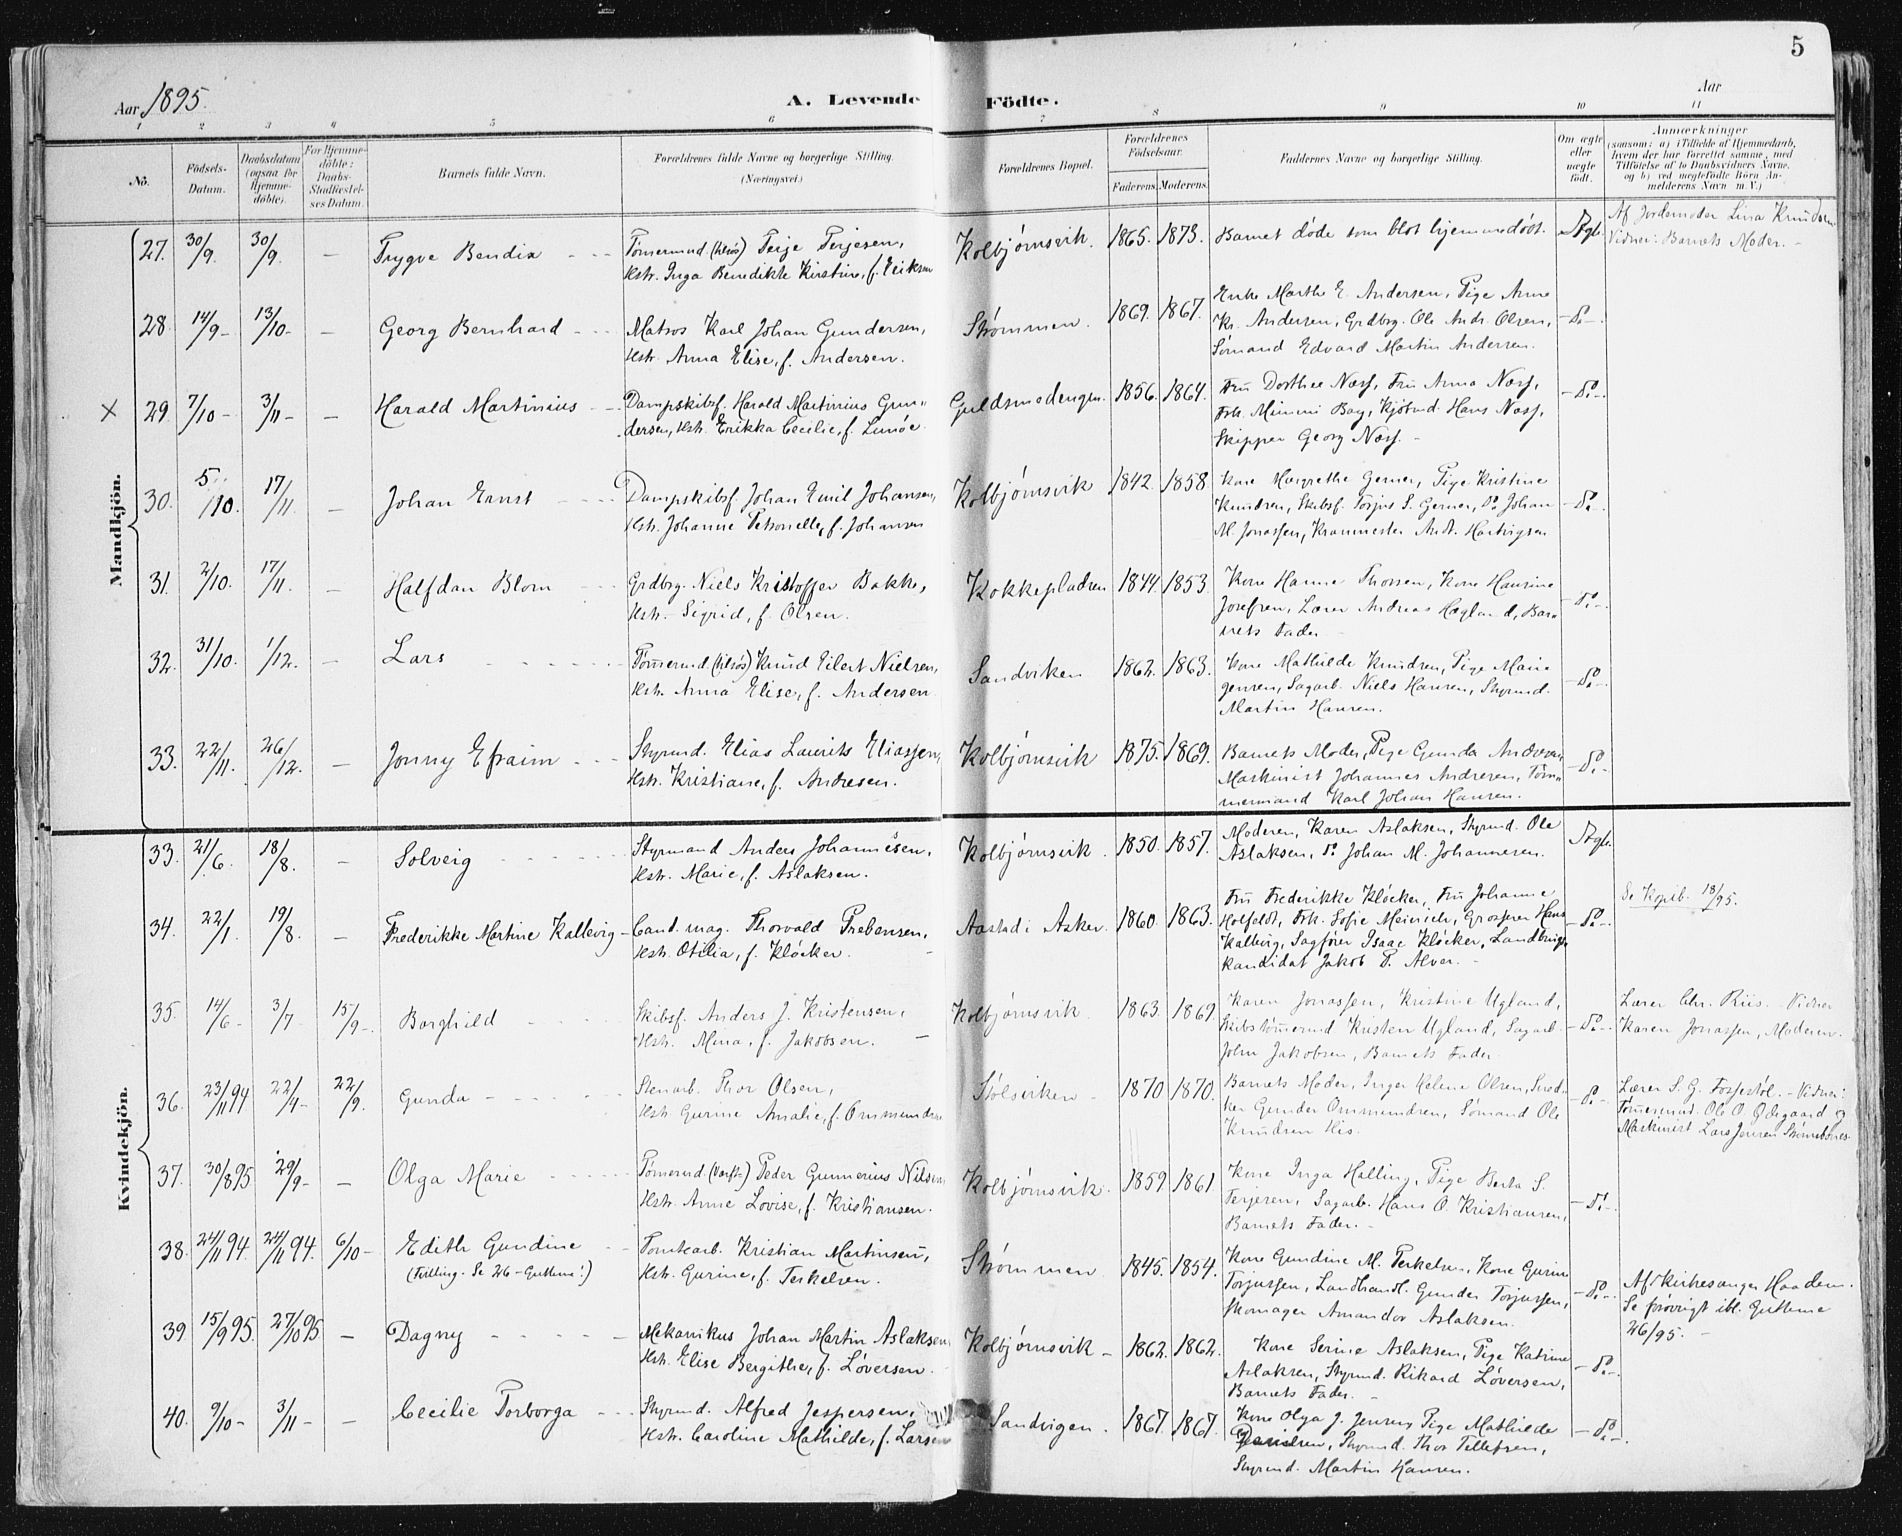 5
Aar 1895.
A. Levende Födte.
Aar
1 2 3 4 5 6 7 8 9 10 11
No.
Födsels-Datum.
Daabsdatum (ogsaa for Hjemme-döbte).
For Hjemme-döbte: Daabs-Stadfæstel-ses Datum.
Barnets fulde Navn.
Forældrenes fulde Navne og borgerlige Stilling. (Næringsvei.)
Forældrenes Bopæl.
Forældrenes Födselsaar.
Faderens. Moderens.
Faddernes Navne og borgerlige Stilling.
Om ægte eller uægte födt.
Anmærkninger
(saasom: a) i Tilfælde af Hjemmedaab, hvem der har forrettet samme, med Tilföielse af to Daabsvidners Navne, og b) ved uægtefödte Börn An-melderens Navn m. V.)
Mandkjön.
27. 30/9. 30/9. – Trygve Bendix
Tømermd (tiløs) Terje Terjesen,
Hstr. Inga Benedikte Kirstine, f. Eriksen
Kolbjørnsvik. 1865. 1873.
Barnet døde som blot hjemmedøbt.
Ægte.
Af Jordemoder Lina Knudsen
Vidner: Barnets Moder. –
28. 14/9 – 13/10 – – Georg Bernhard
Matros Karl Johan Gundersen,
Hstr. Anna Elise, f. Andersen.
Strømmen. 1869. 1867.
Enke Marthe E. Andersen, Pige Anne
Kr. Andersen, Grdbrg. Ole Andr. Olsen,
Sømand Edvard Martin Andersen.
– do –
× 29. 7/10 – 3/11 – – Harald Martinius
Dampskibsf. Harald Martinius Gun-
dersen, Hstr. Erikka Cecilie, f. Lunøe.
Guldsmedengen. 1856. 1864.
Fru Dorthea Næss, Fru Anna Næss,
Frk. Mimmi Bay, Kjøbmd. Hans Næss,
Skipper Georg Næss. –
– do –
30. 5/10. 17/11. – Johan Ernst
Dampskibsf. Johan Emil Johansen,
Hstr. Johanne Petronelle, f. Johansen
Kolbjørnsvik 1842. 1858.
Kone Margrethe Gerner, Pige Kristine
Knudsen, Skibsf. Torjus S. Gerner, do Johan
M. Jonassen, Havnemester Andr. Hartvigsen
– do –
31. 2/10. 17/11. – Halfdan Blom
Grdbrg. Niels Kristoffer Bakke,
Hstr. Sigrid, f. Olsen.
Kokkepladsen 1844. 1853.
Kone Hanne Thorsen, Kone Hansine
Josefsen, Lærer Andreas Høgland, Bar-
nets Fader
– do –
32. 31/10. 1/12. – Lars
Tømermd (tiløs) Knud Eilert Nielsen,
Hstr. Anna Elise, f. Andersen
Sandviken 1862. 1863.
Kone Mathilde Knudsen, Pige Marie
Jensen, Sagarb. Niels Hansen, Styrmd.
Martin Hansen.
– do –
33. 22/11. 26/12. – Jonny Efraim
Styrmd. Elias Laurits Eliassen,
Hstr. Kristiane, f. Andresen.
Kolbjørnsvik 1875. 1869.
Barnets Moder, Pige Gunda Andresen,
Maskinist Johannes Andresen, Tøm-
mermand Karl Johan Hansen.
– do –
Kvindekjön.
33. 21/6. 18/8. – Solveig
Styrmand Anders Johannesen,
Hstr. Marie, f. Aslaksen.
Kolbjørnsvik. 1850. 1857.
Moderen, Karen Aslaksen, Styrmd. Ole
Aslaksen, do Johan M. Johannesen.
Ægte.
34. 22/1. 19/8. – Frederikke Martine Kallevig
Cand. mag. Thorvald Prebensen,
Hstr. Otilia, f. Kløcker.
Aastad i Asker 1860. 1863.
Fru Frederikke Kløcker, Fru Johanne
Holfeldt, Frk. Sofie Meinich, Grosserer Hans
Kallevig, Sagfører Isaac Kløcker, Landbrugs-
kandidat Jakob P. Alver. –
– do –
Se Kopib. 18/95.
35. 14/6 – 3/7 – 15/9 – Borghild
Skibsf. Anders J. Kristensen,
Hstr. Mina, f. Jakobsen.
Kolbjørnsvik. 1863. 1869.
Karen Jonassen, Kristine Ugland,
Skibstømermd Kristen Ugland, Sagarb.
John Jakobsen, Barnets Fader.
– do –
Lærer Chr. Riis. – Vidner
Karen Jonassen, Moderen.
36. 23/11 94 22/4 – 22/9. Gunda
Stenarb. Thor Olsen,
Hstr. Gurine Amalie, f. Ommundsen
Stølsviken 1870 1870.
Barnets Moder, Inger Helene Olsen, Sned-
ker Gunder Ommundsen, Sømand Ole
Knudsen His.
– do –
Lærer S. G. Fossestøl. – Vidner:
Tømermd. Ole O. Ødegaard og
Maskinist Lars Jensen Strømsbønes.
37. 30/8 95 29/9 – – Olga Marie
Tømermd (Værft) Peder Gunnerius Nilsen,
Hstr. Anne Lovise, f. Kristiansen.
Kolbjørnsvik. 1859 1861
Kone Inga Halling, Pige Berta S.
Terjesen, Sagarb. Hans O. Kristiansen,
Barnets Fader. –
– do –
38. 24/11 94. 24/11 94. 6/10 – Edith Gundine
(Tvilling. Se 26 – Guttene!)
Tomtearb. Kristian Martinsen,
Hstr. Gurine, f. Terkelsen.
Strømmen 1845. 1854.
Kone Gundine M. Terkelsen, Kone Gurine
Torjussen, Landhandl. Gunder Torjussen,
Skomager Amandor Aslaksen.
– do –
Af Kirkesanger Haadem.
Se forøvrigt ibl. Guttene
26/95. –
39. 15/9 95. 27/10 95 – Dagny
Mekanikus Johan Martin Aslaksen
Hstr. Elise Bergithe, f. Løversen.
Kolbjørnsvik – 1862. 1862.
Kone Serine Aslaksen, Pige Katrine
Aslaksen, Styrmd. Rikard Løversen,
Barnets Fader. –
– do –
40. 9/10 – 3/11 – – Cecilie Torborga
Styrmd. Alfred Jespersen,
Hstr. Caroline Mathilde, f. Larsen
Sandvigen. 1867. 1867.
Kone Olga J. Jensen, Pige Mathilde
Danielsen, Styrmd. Thor Tellefsen,
Styrmd. Martin Hansen.
– do –